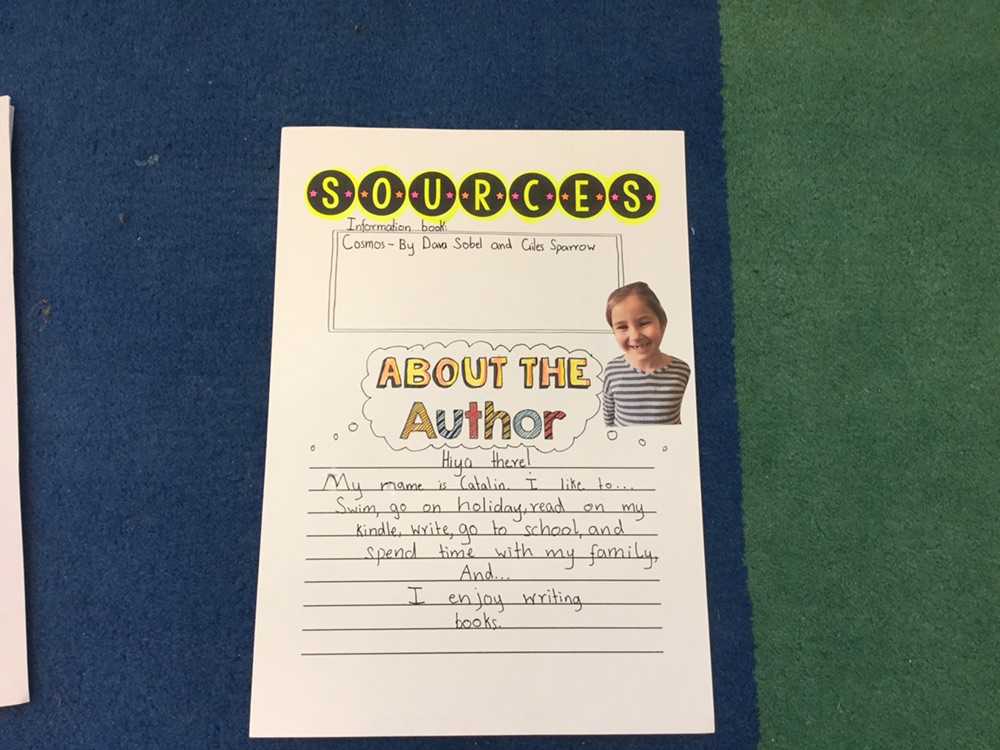 SOURCES
Information book:
Cosmos - By Dava Sobel and Giles Sparrow
ABOUT THE
Author
Hiya there!
My name is Catalin. I like to...
Swim, go on holiday, read on my
kindle, write, go to school, and
spend time with my family,
And...
I enjoy writing
books.